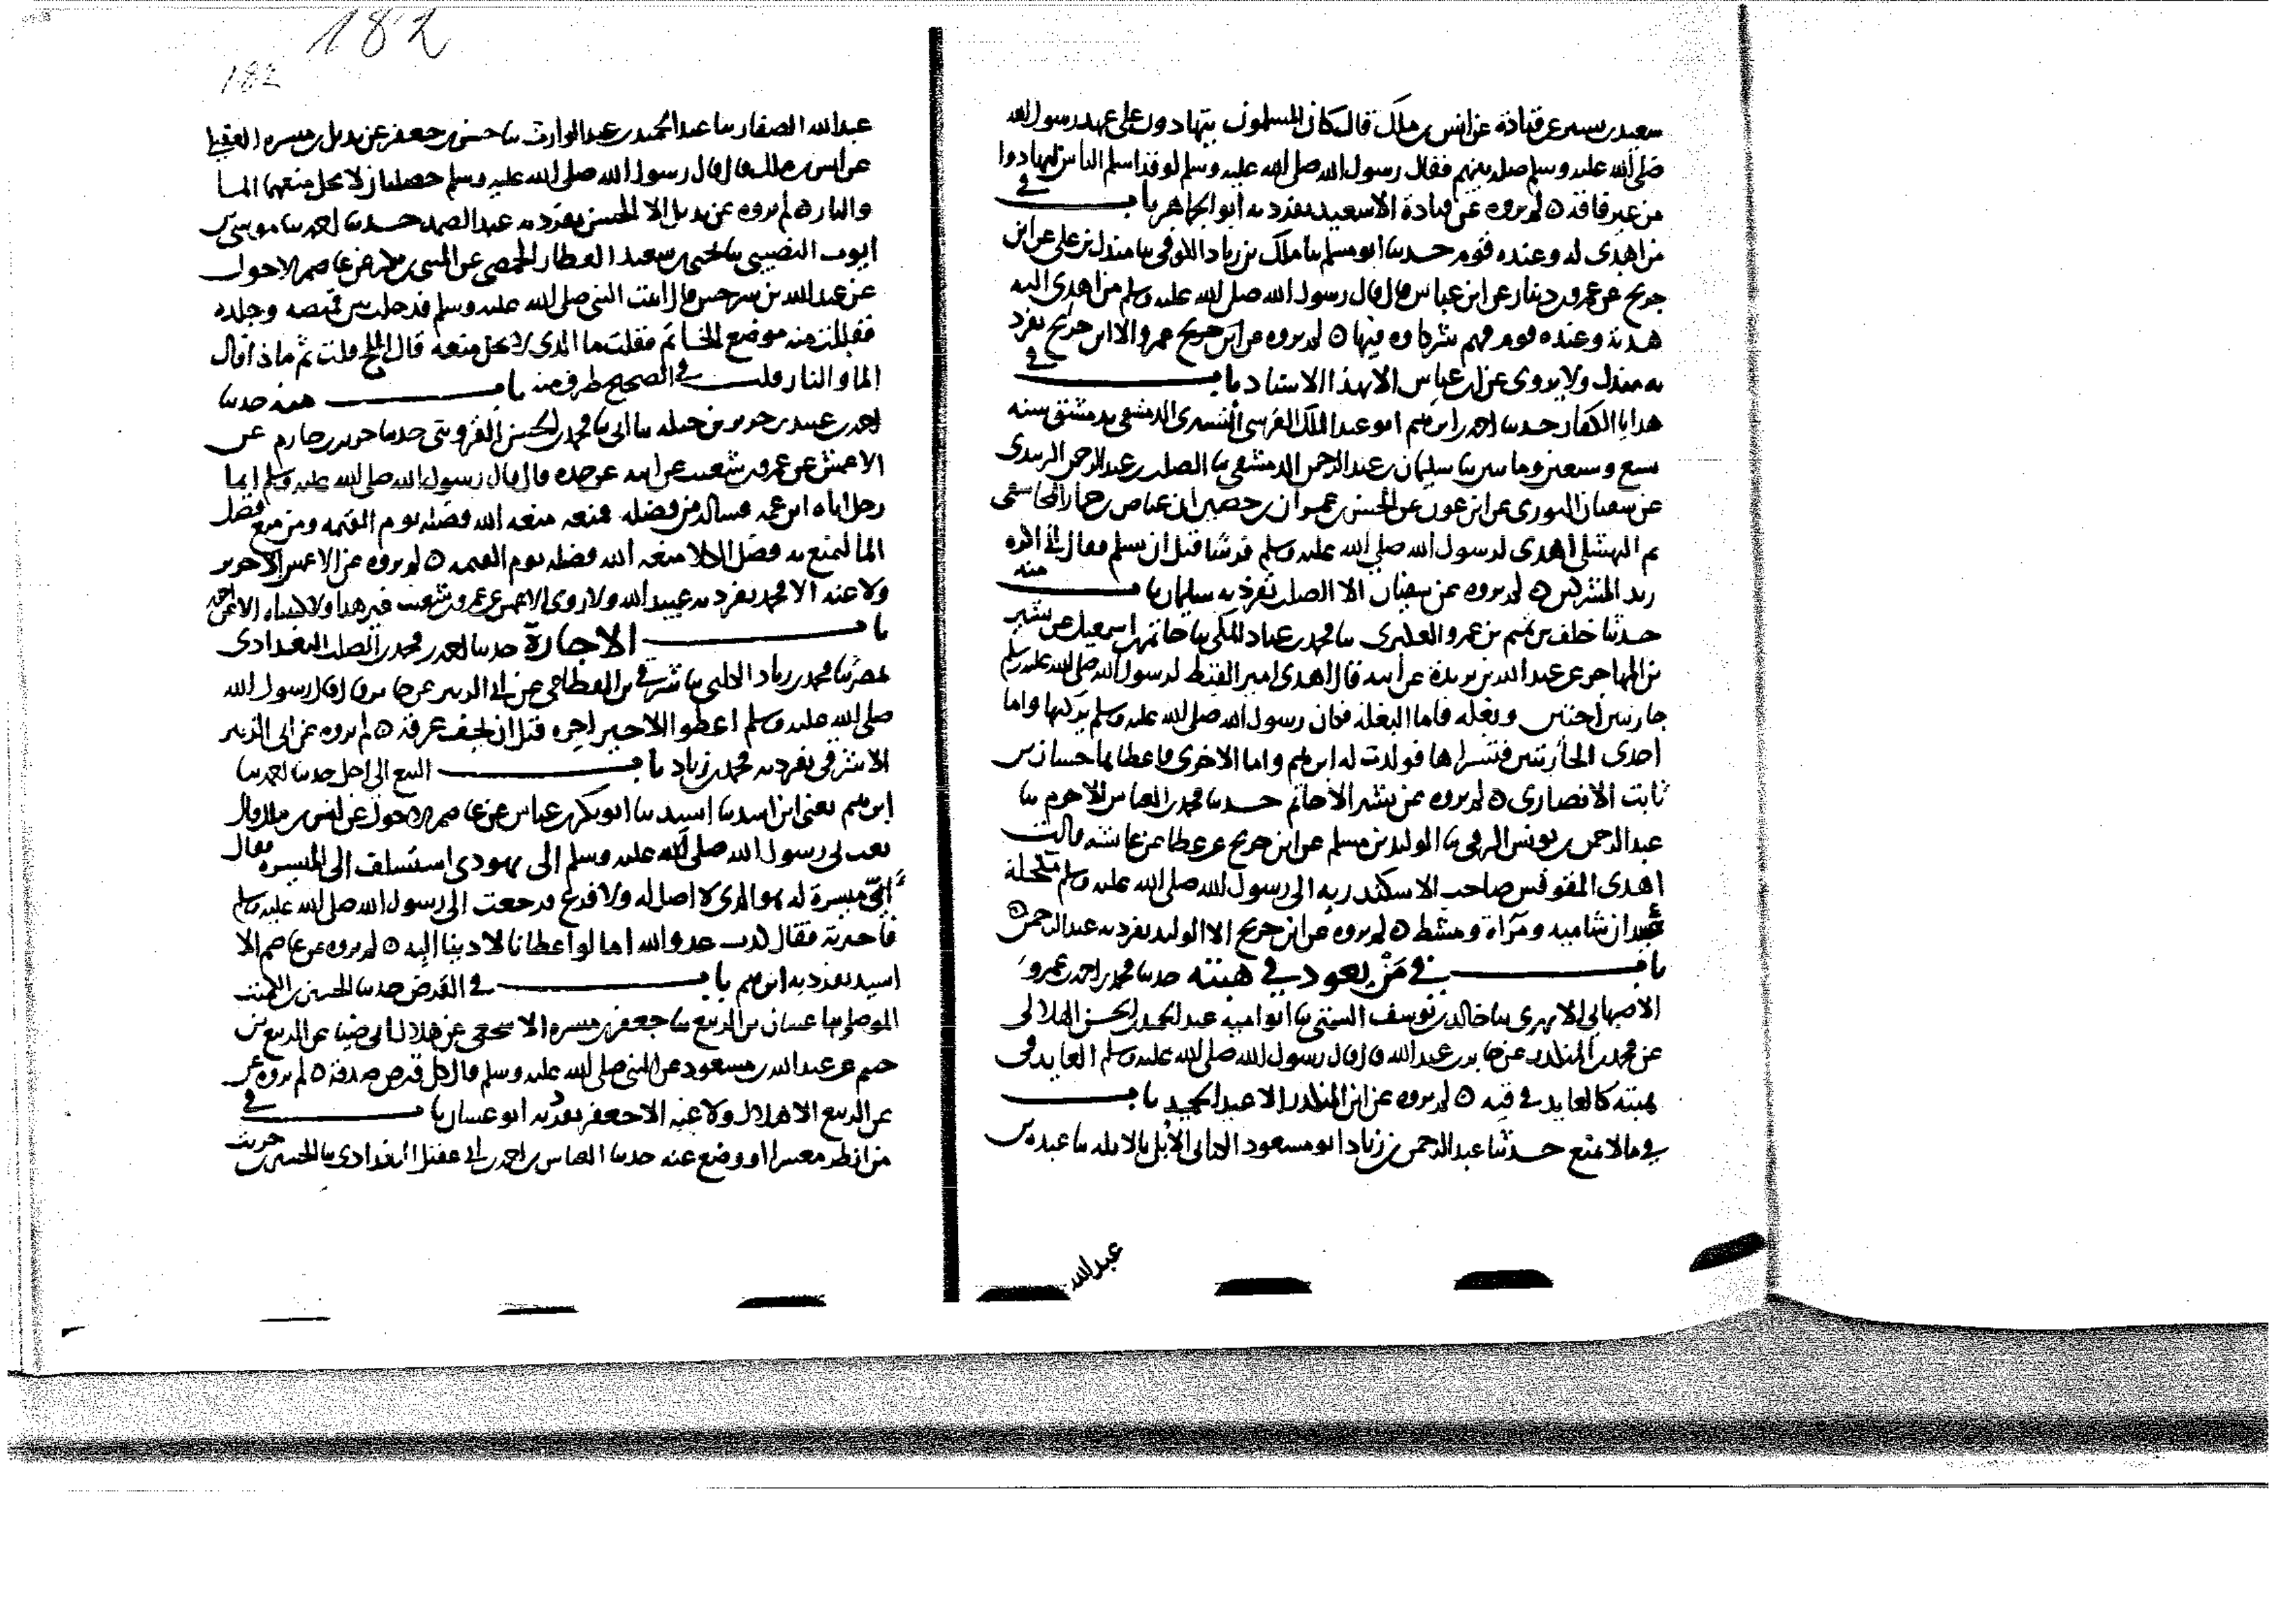 182
182
سعيد بن بشير عن قتادة عن انس بن ملك قال كان المسلمون يتهادون على عهد رسول الله
صلى الله عليه وسلم صلة بينهم فقال رسول الله صلى الله عليه وسلم لو قد اسلم الناس تهادوا
من غير فاقة ٥ لم يروه عن قتادة الا سعيد تفرد به أبو الجماهر باب في
من اهدى له وعنده قوم حدثنا ابو مسلم ثنا ملك بن زياد الكوفى ثنا مندل بن على عن ابن
جريج عن عمرو بن دينار عن ابن عباس قال قال رسول الله صلى الله عليه وسلم من اهدى اليه
هدية وعنده قوم فهم شركاوه فيها ٥ لم يروه عن ابن جريج عمرو الا ابن جريج تفرد
به مندل ولا يروى عن ابن عباس الا بهذا الاسناد باب في
هدايا الكفار حدثنا احمد بن ابرهيم ابو عبد الملك القرشى البسرى الدمشقى بدمشق سنه
سبع وسبعين وما سن ثنا سليمان بن عبد الرحمن الدمشقى ثنا الصلت بن عبد الرحمن الزبيدى
عن سفيان الثورى عن ابن عون عن الحسن عن عمران بن حصين ان عياض بن حمار المجاشعى
ثم النهشلى اهدى لرسول الله صلى الله عليه وسلم فرسا قبل ان يسلم فقال انى اكره
زبد المشركين ٥ لم يروه عن سفيان الا الصلت تفرد به سليمان باب منه
حدثنا خلف بن تميم بن عمرو العكبرى ثنا محمد بن عباد المكى ثنا حاتم بن اسمعيل عن بشير
بن المهاجر عن عبد الله بن بريدة عن أبيه قال اهدى امير القبط لرسول الله صلى الله عليه وسلم
جاريتين اختين وبغله فاما البغلة فكان رسول الله صلى الله عليه وسلم يركبها واما
احدى الجاريتين فتسراها فولدت له ابرهيم واما الاخرى فاعطاها حسان بن
ثابت الانصارى ٥ لم يروه عن بشير الا حاتم حدثنا محمد بن العباس الاخرم ثنا
عبد الرحمن بن يونس الرقى ثنا الوليد بن مسلم عن ابن جريج عن عطا عن عائشه قالت
اهدى المقوقس صاحب الاسكندريه الى رسول الله صلى الله عليه وسلم مكحلة
عيدان شاميه ومرآة ومشط ٥ لم يروه عن ابن جريج الا الوليد تفرد به عبد الرحمن ٥
باب في مَنْ يعود في هبته حدثنا محمد بن احمد بن عمرو
الاصبهانى الابهرى ثنا خالد بن يوسف السمتى ثنا ابو اميه عبد الحميد بن الحسن الهلالى
عن محمد بن المنكدر عن جابر بن عبد الله قال قال رسول الله صلى الله عليه وسلم العايد فى
هبته كالعايد في قيه ٥ لم يروه عن ابن المنكدر الا عبد الحميد باب
في ما لا يمنع حدثنا عبد الرحمن بن زياد ابو مسعود الكنانى الأبلى بالابله ثنا عبدة بن
عبد الله
عبد الله الصفار ثنا عبد الصمد بن عبد الوارث ثنا حسن بن جعفر عن بديل بن ميسره العقيلى
عن انس بن ملك قال قال رسول الله صلى الله عليه وسلم خصلتان لا يحل منعهما الما
والنار ٥ لم يروه عن بديل الا الحسن تفرد به عبد الصمد حدثنا احمد ثنا موسى بن
ايوب النصيبى ثنا يحيى بن سعيد العطار الحمصى عن المثنى بن بكر عن عاصم الاحول
عن عبد الله بن سرجس قال رايت النبى صلى الله عليه وسلم فدخلت بين قميصه وجلده
فقبلت منه موضع الخاتم فقلت ما الذى لا يحل منعه قال الملح قلت ثم ماذا قال
الما والنار قلت في الصحيح طرف منه باب منه حدثنا
احمد بن عبيد بن جرير بن جبله ثنا ابى ثنا محمد بن الحسن القردوسى حدثنا جرير بن حازم عن
الاعمش عن عمرو بن شعيب عن ابيه عن جده قال قال رسول الله صلى الله عليه وسلم ايما
رجل اتاه ابن عمه فساله من فضله فمنعه منعه الله فضله يوم القيمه ومن منع فضل
الما ليمنع به فضل الكلا منعه الله فضله يوم القيمه ٥ لم يروه عن الاعمش الا جرير
ولا عنه الا محمد تفرد به عبيد الله ولا روى الاعمش عن عمرو بن شعيب غير هذا
باب الاجارة حدثنا احمد بن محمد بن الصلت البغدادى
بمصر ثنا محمد بن زياد الكلبى ثنا شرقى بن القطامى عن ابى الزبير عن جابر قال قال رسول الله
صلى الله عليه وسلم اعطوا الاجير اجره قبل ان يجف عرقه ٥ لم يروه عن ابى الزبير
الا شرقى تفرد به محمد بن زياد باب البيع الى اجل حدثنا احمد ثنا
ابرهيم يعنى ابن راشد ثنا اسيد ثنا ابو بكر بن عياش عن عاصم الاحول عن انس بن ملك قال
بعث بى رسول الله صلى الله عليه وسلم الى يهودى استسلف الى الميسره فقال
أىّ ميسرة له هو الذى لا اصل له ولا فرع فرجعت الى رسول الله صلى الله عليه وسلم
فاخبرته فقال كذب عدو الله اما لو اعطانا لادينا اليه ٥ لم يروه عن عاصم الا
اسيد تفرد به ابرهيم باب في القرض حدثنا الحسين بن الكميت
الموصلى ثنا غسان بن الربيع ثنا جعفر بن ميسره الاشجعى عن هلال ابى ضيا عن الربيع بن
خثيم عن عبد الله بن مسعود عن النبى صلى الله عليه وسلم قال كل قرض صدقه ٥ لم يروه عن
عن الربيع الا هلال ولا عنه الا جعفر تفرد به ابو غسان باب في
من انظر معسرا او وضع عنه حدثنا العباس بن احمد بن ابى عقيل البغدادى ثنا الحسين بن حريث